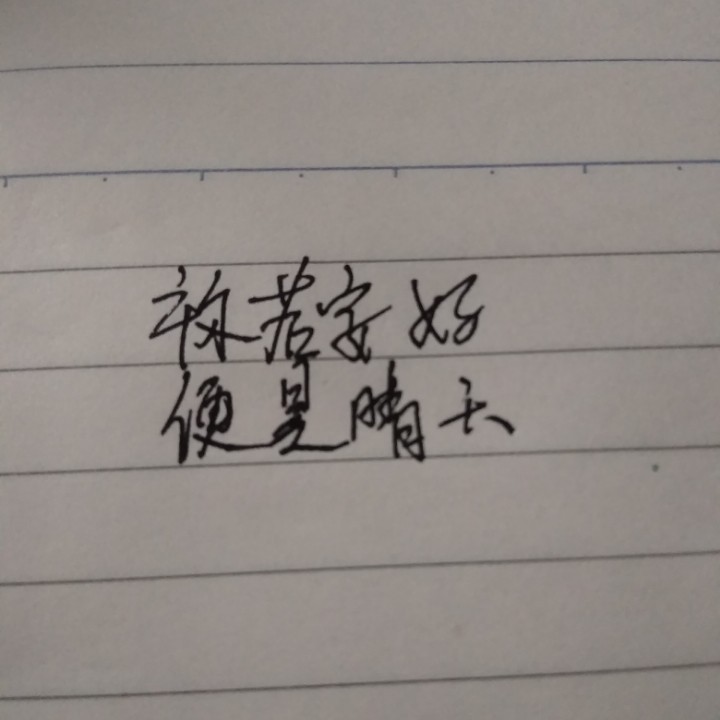 祢若安好
便是晴天